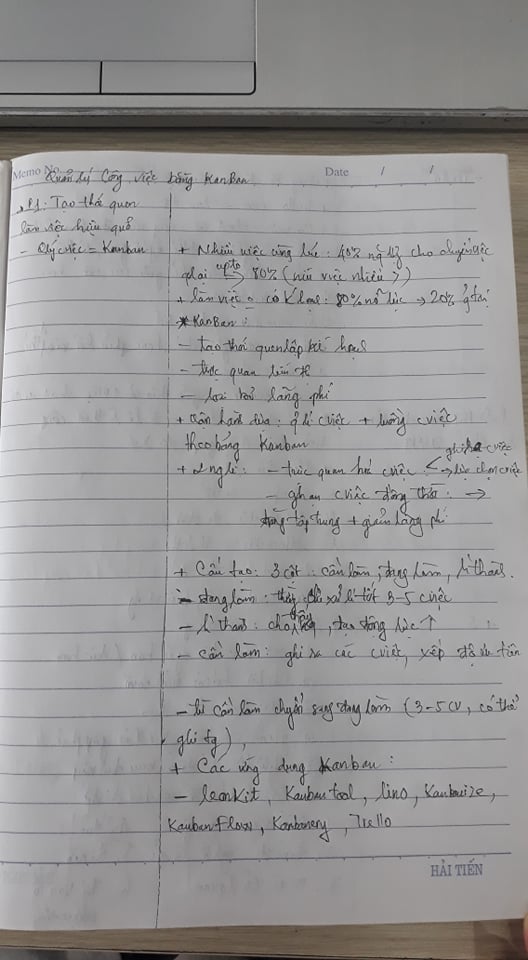 Memo No.
Date / /
Quản lý công việc bằng KanBan
P1: Tạo thói quen
làm việc hiệu quả
- Qlý cviệc = Kanban
+ Nhiều việc cùng lúc: 40% ng lg cho chuyển việc
upto 80% (nếu việc nhiều)
+ làm việc có K hoạch: 80% nỗ lực → 20% giá trị
* KanBan:
- tạo thói quen lập kế hoạch
- trực quan
- loại bỏ lãng phí
+ vận hành dựa: cviệc + luồng cviệc
theo bảng Kanban
ghi ra cviệc
+ 2 ng lí: - trực quan hoá cviệc: → lựa chọn cviệc
- gh an cviệc đồng thời: →
tăng tập trung + giảm lãng phí
+ Cấu tạo: 3 cột: cần làm, đang làm, h thành.
- đang làm: xử lí tốt 3-5 cviệc
- h thành: tạo động lực ↑
- cần làm: ghi ra các cviệc, xếp độ ưu tiên
- từ cần làm chuyển sang đang làm (3-5 CV, có thể
ghi tg),
+ Các ứng dụng Kanban:
- leankit, Kanban tool, lino, Kanbanize,
Kanban Flow, Kanbanery, Trello
HẢI TIẾN